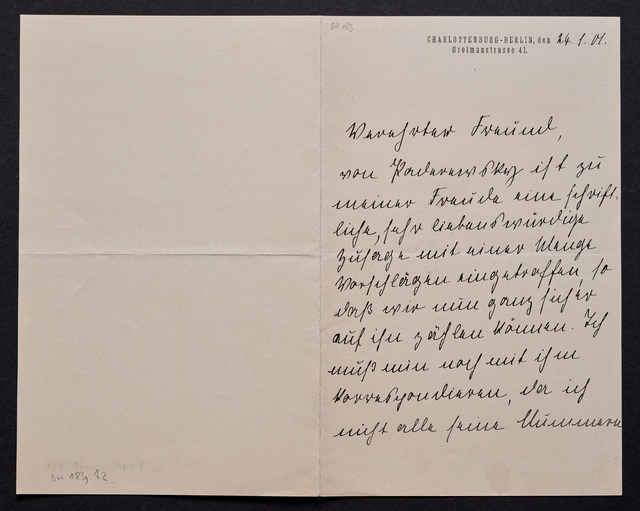 BH 183
CHARLOTTENBURG-BERLIN, den 24. 1. 01.
Grolmanstrasse 41.
Verehrter Freund,
von Paderewsky ist zu
meiner Freude eine schrift-
liche, sehr liebenswürdige
Zusage mit einer Menge
Vorschlägen eingetroffen, so
daß wir nun ganz sicher
auf ihn zählen können. Ich
muß nun noch mit ihm
korrespondieren, da ich
nicht alle seine Nummern
BH 183, 12